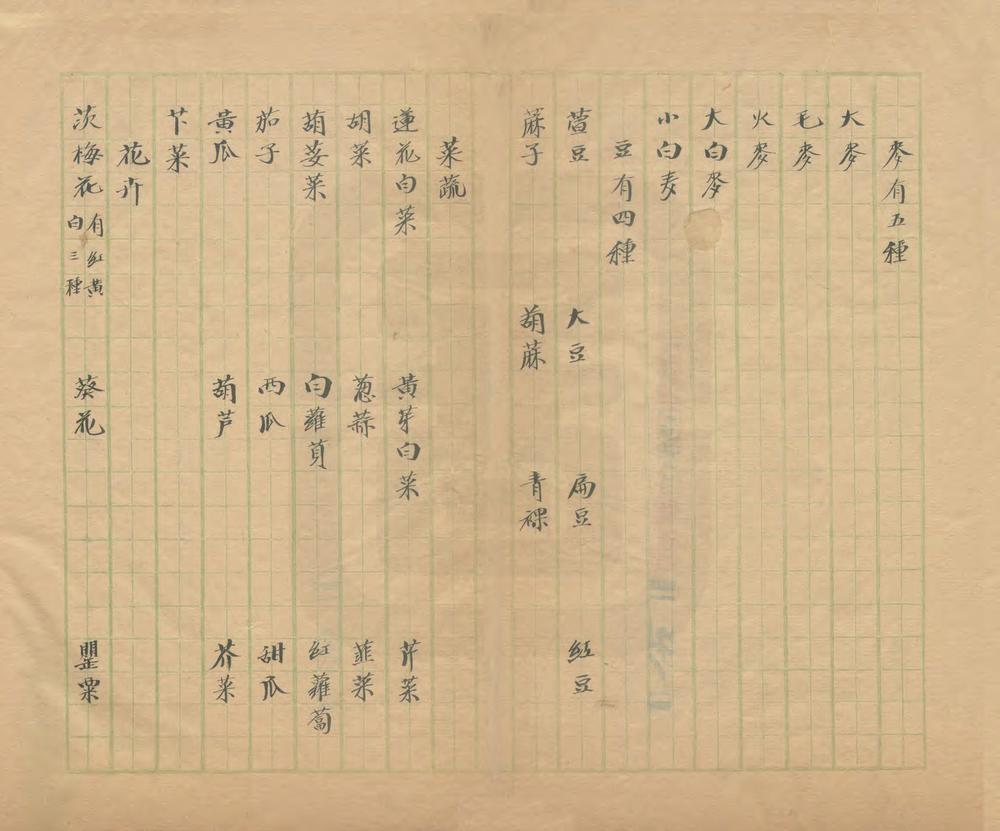 麥有五種
大麥
毛麥
火麥
大白麥
小白麦
豆有四種
荳豆 大豆 扁豆 紅豆
蔴子 葫蔴 青稞
菜蔬
蓮花白菜 黃芽白菜 芹菜
胡菜 葱蒜 韮菜
葫荽菜 白蘿蔔 紅蘿蔔
茄子 西瓜 甜瓜
黃瓜 葫芦 芥菜
芐菜
花卉
茨梅花有紅黃白三種 葵花 罌粟